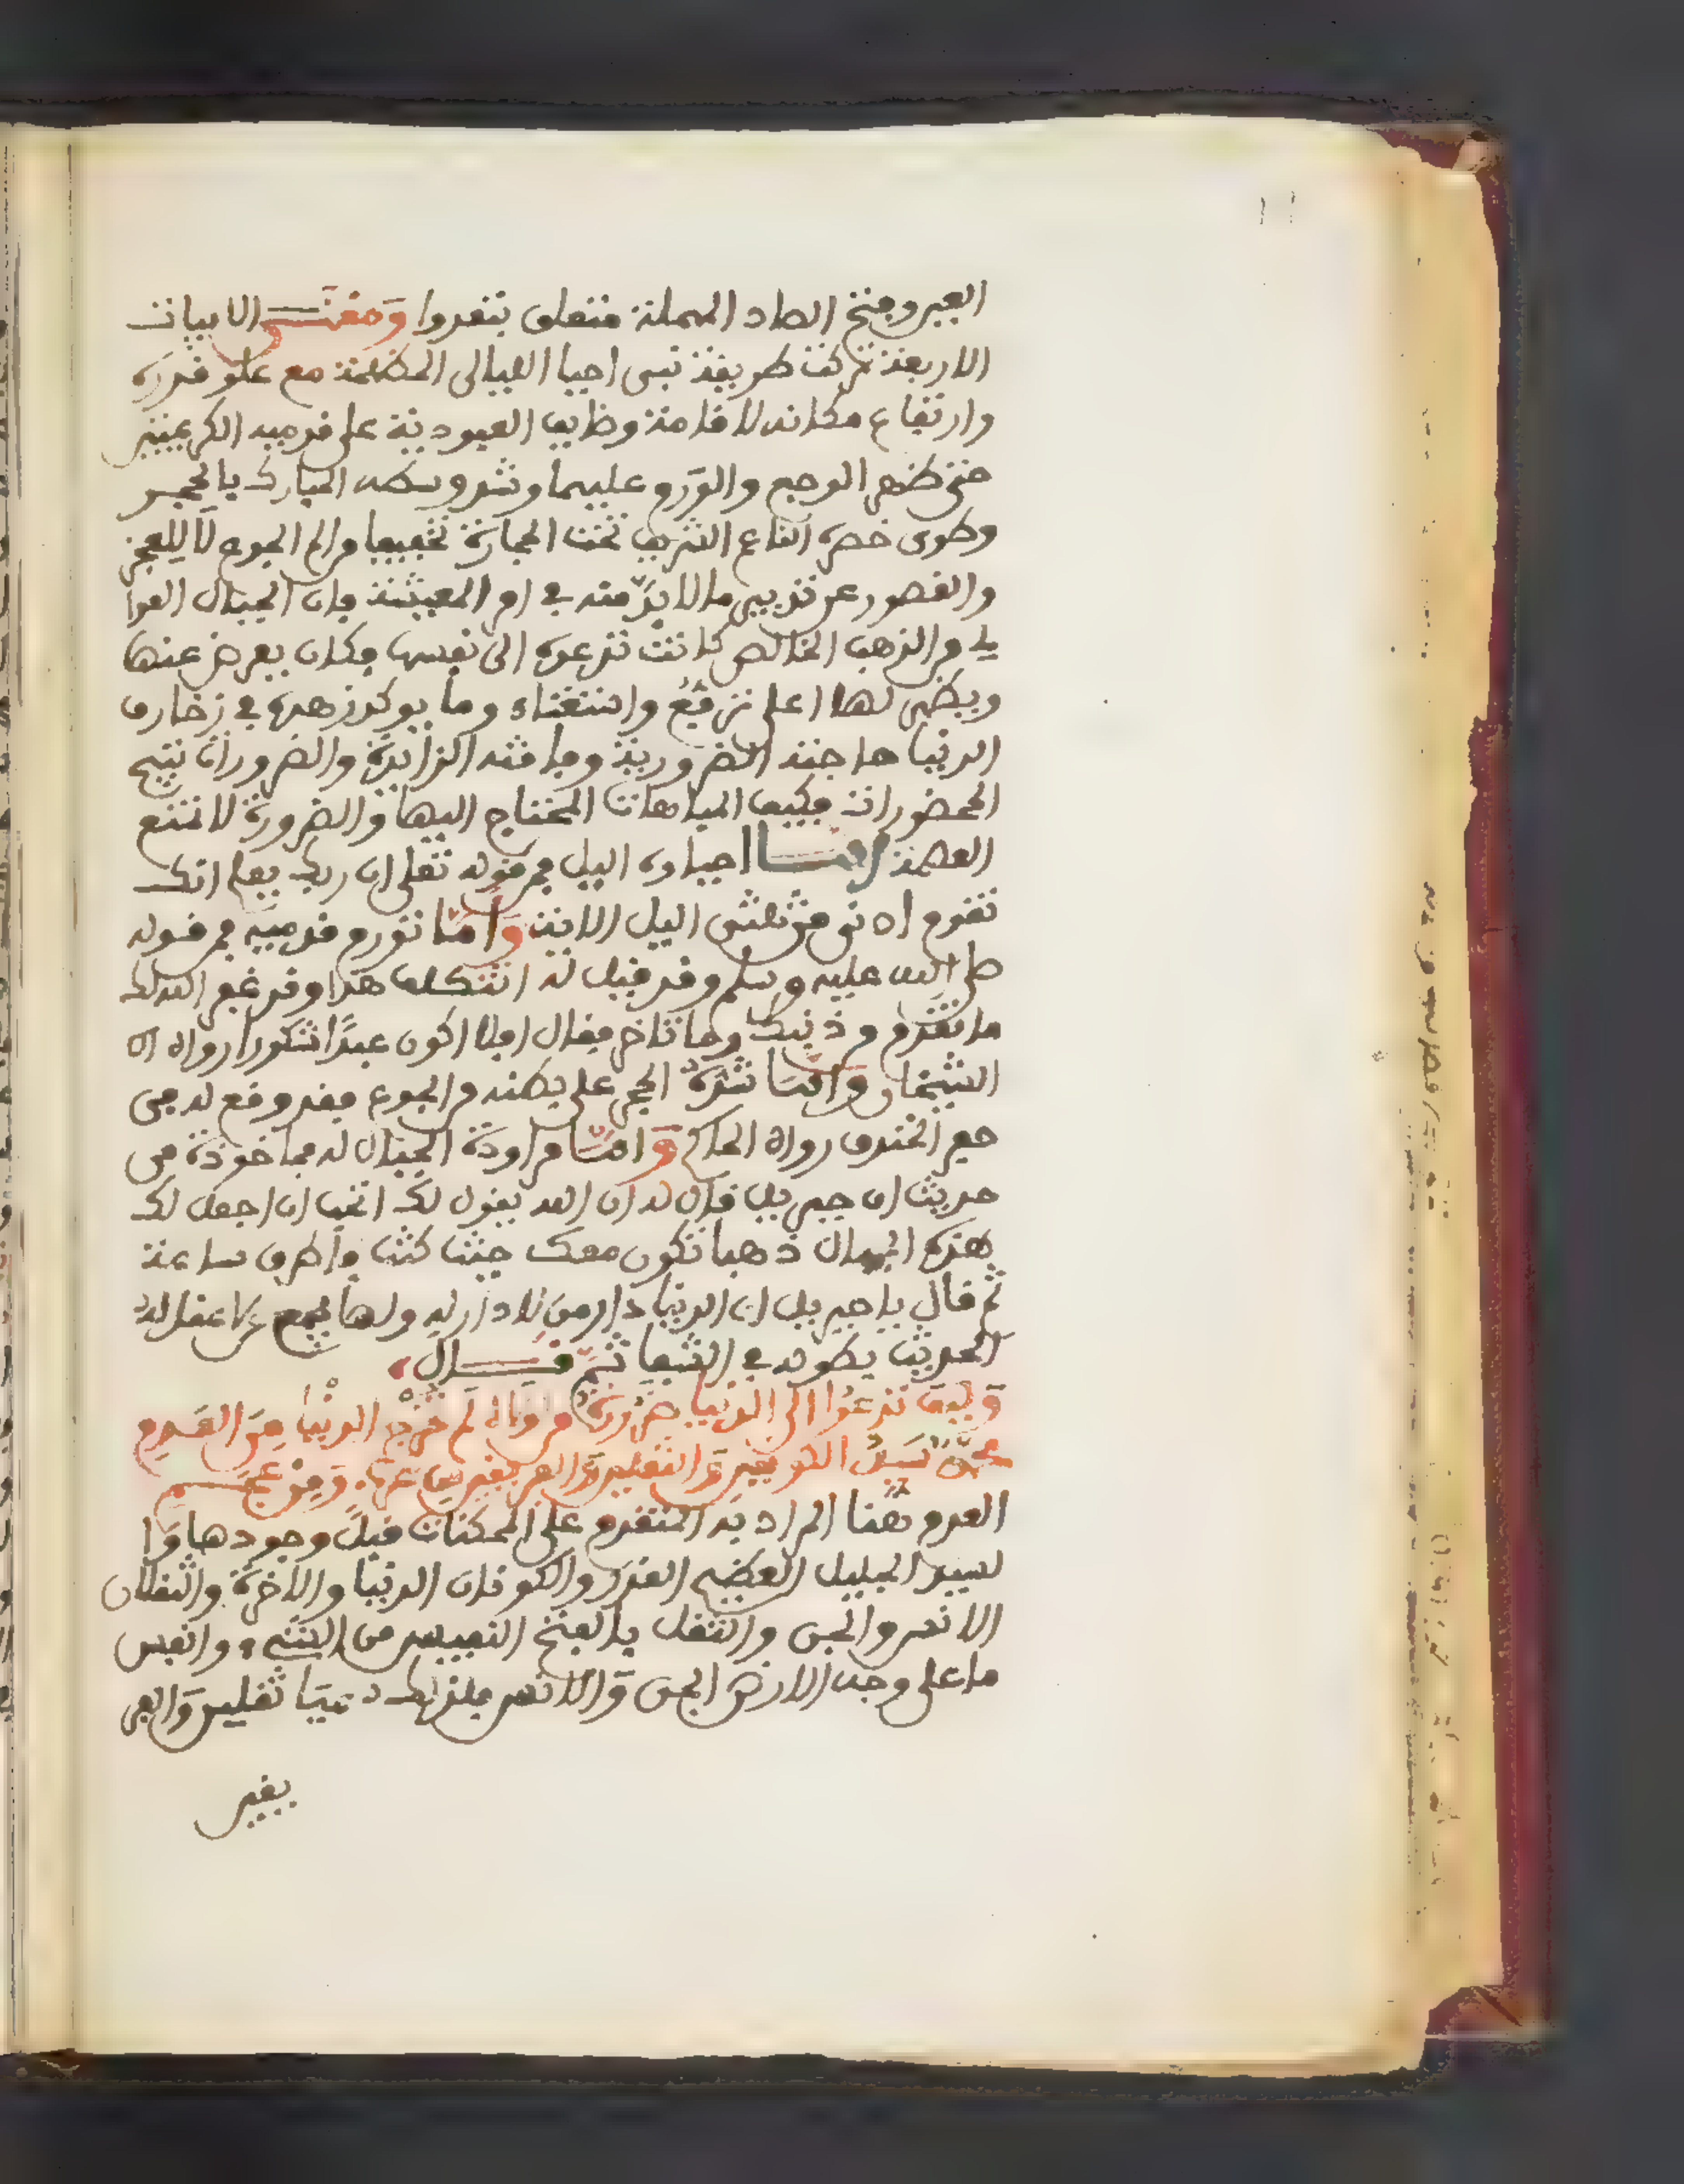 العين وفتح الصاد المهملة متعلق بتغدوا ومعنـــى الابيات
الاربعة تركت طريقة نبي احيا الليالى المظلمة مع علو قدره
وارتفاع مكانه لاقامة وظايف العبودية على قدميه الكريمتين
حتى ظهر الوجع والورم عليهما وشد وسطه المبارك بالحجر
وطوى خصره الناعم الشريف تحت الحجارة تخفيفا من الم الجوع لا للعجز
والقصور عن تدبير ما لا بد منه في امر المعيشة فان الجبال العوا
لي من الذهب الخالص كانت تدعوه الى نفسها فكان يعرض عنها
ويظهر لها اعلى ترفع واستغناء وما يوكد زهده في زخارف
الدنيا حاجته الضرورية وفاقته الزائدة والضرورات تبيح
المحضورات فكيف المباحات المحتاج اليها والضرورة لا تمنع
العصمة امـــا احياوه اليل فمن قوله تعلى ان ربك يعلم انك
تقوم ادنى من ثلثى اليل الاية واما تورم قدميه فمن قوله
صلى الله عليه وسلم وقد قيل له اتتكلف هذا وقد غفر الله لك
ما تقدم من ذنبك وما تاخر فقال افلا اكون عبدا شكورا رواه اه
الشيخان واما شده الحجر على بطنه من الجوع فقد وقع له في
حفر الخندق رواه الحاكم واما مراودة الجبال له فماخوذة من
حديث ان جبريل قال له ان الله يقول لك اتحب ان اجعل لك
هذه الجبال ذهبا تكون معك حيثما كنت فاطرق ساعة
ثم قال يا جبريل ان الدنيا دار من لا دار له ولها يجمع من لا عقل له
الحديث بطوله في الشفا ثم قـــال
وكيف تدعوا الى الدنيا ضرورة من لولاه لم تخرج الدنيا من العدم
محمد سيد الكونين والثقلين والفريقين من عرب ومن عجـــم
العدم هنا المراد به المتقدم على الممكنات قبل وجودها وا
لسيد الجليل العظيم القدر والكونان الدنيا والاخرة والثقلان
الانس والجن والثقل بالفتح النفيس من الشيء وانفس
ما على وجه الارض الجن والانس فلذلك سميا ثقلين والفر
يقين